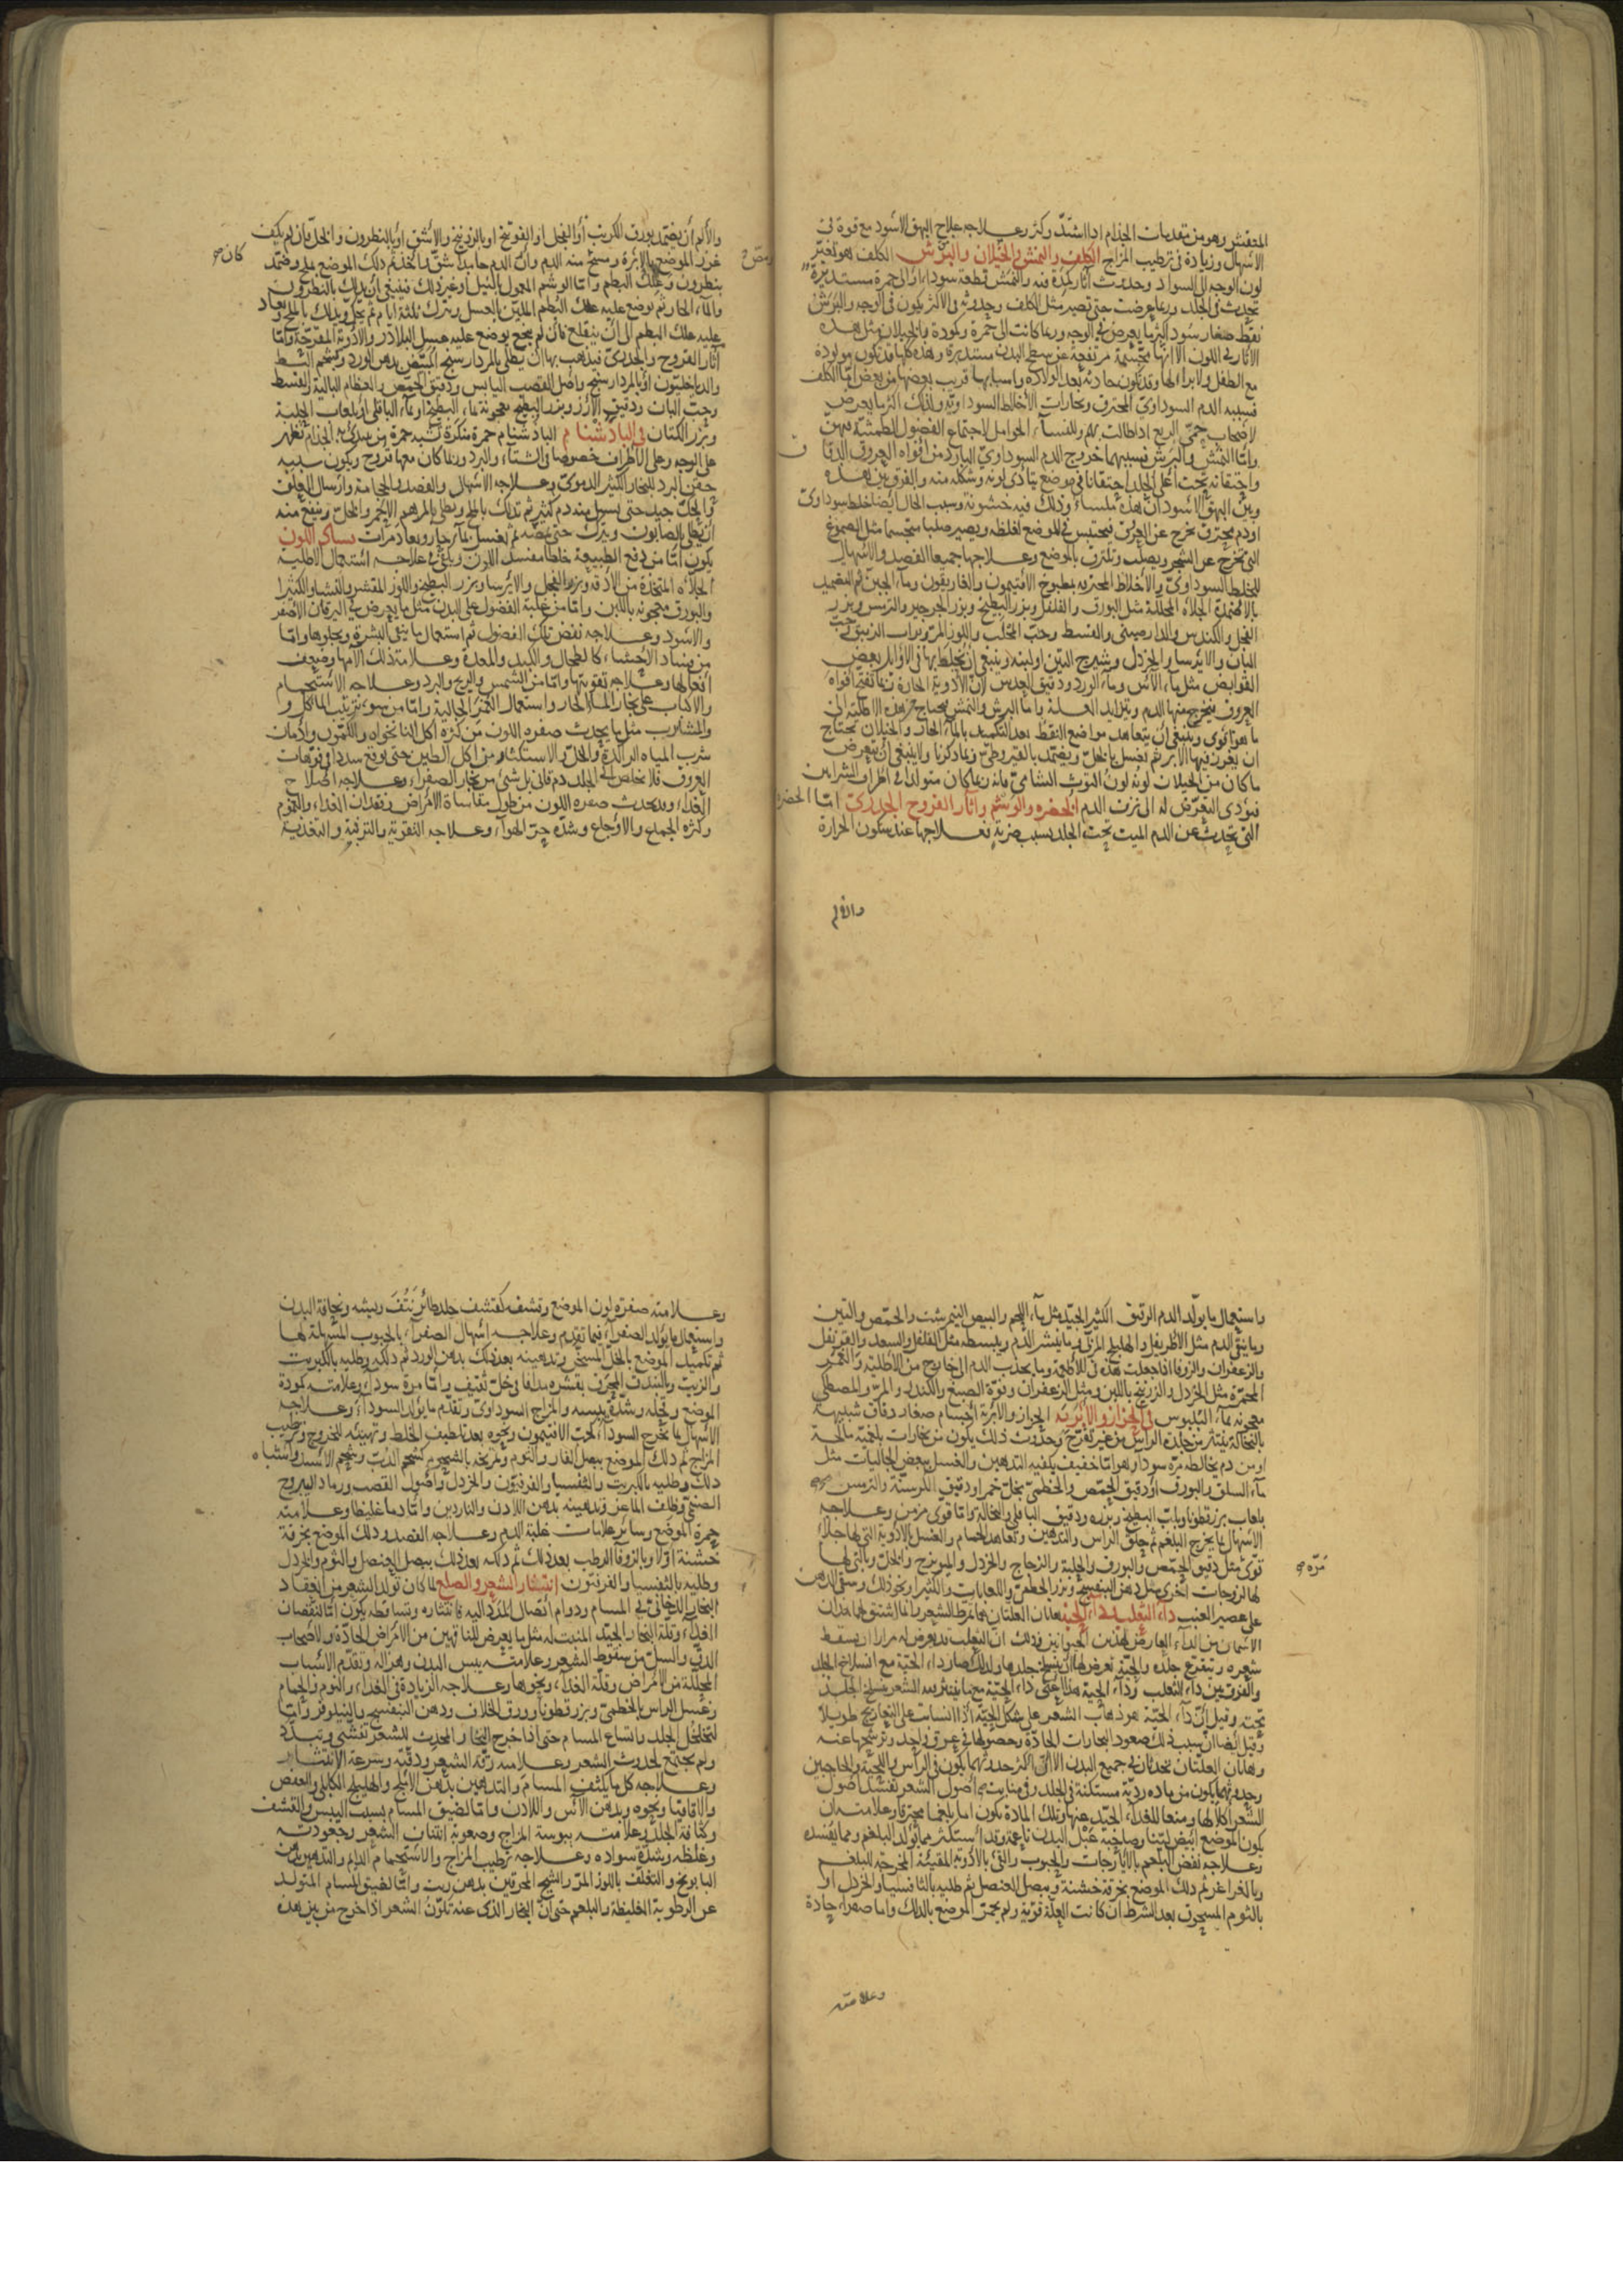 المتقشر وهو من مقدمات الجذام اذا اشتدّ وكثر وعلاجه علاج البهق الأسود مع قوة فى
الاسهال وزيادة فى ترطيب المزاج الكلف والنمش والخيلان والبرش الكلف هو تغيّر
لون الوجه الى السواد وحدوث آثار كمدة فيه والنمش قطعة سوداء او الى حمرة مستديرة
تحدث فى الجلد وربما عرضت حتى تصير مثل الكلف وحدوثه فى الأكثر يكون فى الوجه والبرش
نقط صغار سود اكثر ما يعرض فى الوجه وربما كانت الى حمرة وكمودة والخيلان مثل هذه
الآثار فى اللون الا انها متجسّمة مرتفعة عن سطح البدن مستديرة وهذه كلها قد تكون مولودة
مع الطفل ولا برء لها وقد تكون حادثة بعد الولادة واسبابها قريب بعضها من بعض امّا الكلف
فسببه الدم السوداوىّ المحترق وبخارات الأخلاط السوداوية ولذلك اكثر ما يعرض
لاصحاب حمّى الربع اذا طالت بهم وللنساء الحوامل لاجتماع الفضول الطمثية فيهنّ
وامّا النمش والبرش فسببهما خروج الدم السوداوىّ البارد من افواه العروق الدقاق
واحتقانه تحت أعلى الجلد احتقانا فى موضع يتأدى لونه وشكله منه والفرق بين هذه
وبين البهق الأسود انّ هذه ملساء وذلك فيه خشونة وسبب الخال ايضا خلط سوداوىّ
او دم محترق يخرج عن العرق فيحتبس فى الموضع لغلظه ويصير صلبا متجسما مثل الصموغ
التى تخرج عن الشجر ويصلب وتلتزق بالموضع وعلاجها جميعا الفصد والاسهال
للخلط السوداوىّ والأخلاط المحترقة بمطبوخ الافتيمون والغاريقون وماء الجبن ثم التضميد
بالاضمدة الجلاءة المحللة مثل البورق والفلفل وبزر البطيخ وبزر الجرجير والترمس وبزر
الفجل والكندس والدارصينى والقسط وحبّ المحلب واللوز المرّ وتراب الزيبق وحبّ
البان والايرسا والخردل وشيرج التين او لبنه وينبغى ان يخلط بها فى الاوائل بعض
القوابض مثل ماء الآس وماء الورد ودقيق العدس لانّ الأدوية الحارة ربما تفتح افواه
العروق فيخرج منها الدم ويتزايد العلة وامّا البرش والنمش فيحتاج من هذه الأطلية الى
ما هو اقوى وينبغى ان يتعاهد مواضع النقط بعد التكميد بالماء الحار والخيلان تحتاج
ان يغرز فيها الابر ثم تغسل بالخلّ ويضمد بالقيروطىّ وبما ذكرنا ولا ينبغى ان يتعرض
ما كان من الخيلان لونه لون التوث الشامىّ فانه ربما كان متولدا فى اطراف الشرايين
فيؤدى التعرّض له الى نزف الدم الخضرة والوشم وآثار القروح والجدرىّ امّا الخضرة
التى تحدث عن الدم الميت تحت الجلد بسبب ضربة فعلاجها عند سكون الحرارة
والألم
والألم أن يضمد بورق الكرنب أو الفجل او الفوتنج او بالزرنيخ والأشق او بالنطرون والخل فان لم يكف
غرز الموضع بالابرة ومسح منه الدم وان الدم جامدا شقّ واخذ ثم دلك الموضع بملح وضمد
كان صح
بنطرون وعلك البطم وامّا الوشم المعمول بالنيل او غير ذلك فينبغى أن يدلك بالنطرون
والماء الحار ثم يوضع عليه علك البطم الملين بالعسل ويترك ثلثة ايام ثم يحلّ ويدلك بالملح ويعاد
عليه علك البطم الى ان ينقلع فان لم ينجح يوضع عليه عسل البلاذر والادوية المقرّحة وامّا
آثار القروح والجدرىّ فيذهب بها ان يطلى بالمردارسنج المبيّض بدهن الورد وبشحم البط
والدياخليون او بالمردارسنج واصل القصب اليابس ودقيق الحمّص والعظام البالية والقسط
وحبّ البان ودقيق الأرز وبزر البطيخ معجونة بماء البطيخ او ماء الباقلى او بلعاب الحلبة
وبزر الكتان فى الباذشنام الباذشنام حمرة منكرة تشبه حمرة من يبتدئ به الجذام تظهر
على الوجه وعلى الأطراف خصوصا فى الشتاء والبرد وربما كان معها قروح ويكون سببه
حقن البرد للبخار الكثير الدموىّ وعلاجه الاسهال والفصد والحجامة وارسال العلق
والحكّ جيد حتى يسيل منه دم كثير ثم تدلك بالملح ويطلى بالمرهم الاحمر والخلّ وينفع منه
ان يطلى بالصابون ويترك حتى يمضّه ثم يغسل بماء حار ويعاد مرات فساد اللون
يكون امّا من دفع الطبيعة خلطا مفسد اللون ويكفى فى علاجه استعمال الأطلية
الجلاءة المتخذة من الأدقة وبزر الفجل والايرسا وبزر البطيخ واللوز المقشر والنشا والكثيرا
والبورق معجونة باللبن وامّا من غلبة الفضول على البدن مثل ما يعرض فى اليرقان الاصفر
والاسود وعلاجه نفض تلك الفضول ثم استعمال ما ينقى البشرة ويجلوها وامّا
من فساد الأحشاء كالطحال والكبد والمعدة وعلامة ذلك الآمها وضعف
افعالها وعلاجه تقويتها وامّا من الشمس والريح والبرد وعلاجه الاستحمام
والاكباب على بخار الماء الحار واستعمال الغمر الجالية وامّا من سوء ترتيب المآكل و
والمشارب مثل ما يحدث صفرة اللون من كثرة اكل النانخواه والكمون وادمان
شرب المياه الراكدة والخلّ والاستكثار من اكل الطين حتى وقع سدد فى فوّهات
العروق فلا تخلص الى الجلد دم قانى بل شىء من بخار الصفراء وعلاجه اصلاح
الغذاء وقد يحدث صفرة اللون من طول مقاساة الامراض وفقدان الغذاء والهموم
وكثرة الجماع والاوجاع وشدّة حرّ الهواء وعلاجه التقوية والترفيه والتغذية
واستعمال ما يولّد الدم الرقيق الكثير الجيّد مثل ماء اللحم والبيض النيمرشت والحمّص والتين
وما ينقى الدم مثل الاطريفل والهليلج المربّى وما ينشر الدم ويبسطه مثل الفلفل والسعد والقرنفل
والزعفران والزوفا اذا جعلت هذه فى الأطعمة وما يجذب الدم الى خارج من الأطلية والغمر
المحمرّة مثل الخردل والزرنيخ باللبن ومثل الزعفران وفوّة الصبغ والكندر والمرّ والمصطكى
معجونة بماء البلبوس فى الحزاز والابرية الحزاز والابرية اجسام صغار دقاق شبيهة
بالنخالة تنتثر من جلدة الراس من غير تقرّح وحدوث ذلك يكون من بخارات بلغمية مالحة
او من دم يخالطه مرّة سوداء وهو امّا خفيف يكفيه التدهين والغسل ببعض الجاليات مثل
ماء السلق والبورق أو دقيق الحمّص والخطمىّ بخلّ خمر او دقيق الكرسنّة والترمس
بلعاب بزرقطونا ولبّ البطيخ وبزره ودقيق الباقلى والنخالة وامّا قوىّ مزمن وعلاجه
الاسهال بما يخرج البلغم ثم حلق الراس والتدهين وتعاهد الحمام والغسل بالأدوية التى لها جلاء
قوىّ مثل دقيق الحمّص والبورق والحلبة والزجاج والخردل والميويزج والخلّ وبالتى لها
مرّة صح
لها لزوجات اخرى مثل دهن البنفسج وبزر الخطمىّ واللعابات والكثيرا ونحو ذلك وسقى الدهن
على عصير العنب داء الثعلب وداء الحيّة هاتان العلتان بهما تمرّط الشعر وانما اشتق لهما هذان
الاسمان من الداء العارض لهذين الحيوانين وذلك ان الثعلب قد يعرض له مرارا ان يسقط
شعره ويتقرح جلده والحيّة تعرض لها ان ينسلخ جلدها ولذلك صار داء الحيّة مع انسلاخ الجلد
والفرق بين داء الثعلب وداء الحية هذا اعنى داء الحيّة مع ما ينتثر معه الشعر ينسلخ الجلد
تحته وقيل انّ داء الحيّة هو ذهاب الشعر على شكل الحيّة اذا انسابت على التعاريج طويلا
وقيل ايضا ان سبب ذلك صعود البخارات الحادّة وحصولها فى عرق واحد وترشّحها عنه
وهاتان العلّتان تحدثان فى جميع البدن الا انّ اكثر حدوثهما يكون فى الرأس واللحية والحاجبين
وحدوثهما يكون من مادة رديّة مستكنة فى الجلد وفى منابت اصول الشعر تفسد اصول
الشعر اكلا لها ومنعا للغذاء الجيّد عنها وتلك المادة يكون اما بلغما محترقا وعلامته ان
يكون الموضع ابيض لينا وصاحبه عبل البدن ناعمه وقد استكثر مما يولّد البلغم ومما يفسده
وعلاجه نفض البلغم بالايارجات والحبوب والقئ بالأدوية المقيئة المخرجة للبلغم
وبالغراغر ثم دلك الموضع بخرقة خشنة وببصل العنصل ثم طليه بالثافسيا والخردل او
بالثوم المسحوق بعد الشرط ان كانت العلّة قويّة ولم يحمرّ الموضع بالدلك واما صفراء حادة
وعلامته
وعلامته صفرة لون الموضع وتشف كتشف جلد طائر نُتِفَ ريشه ونحافة البدن
واستعمال ما يولد الصفراء فيما تقدم وعلاجه اسهال الصفراء بالحبوب المسهلة لها
ثم تكميد الموضع بالخلّ المسخن وتدهينه بعد ذلك بدهن الورد ثم دلكه وطليه بالكبريت
والزيت وبالبندق المحرق بقشره مدافا فى خلّ ثقيف وامّا مرة سوداء وعلامته كمودة
الموضع وقحله وشدّة يبسه والمزاج السوداوىّ وتقدّم ما يولد السوداء وعلاجه
الاسهال بما يخرج السوداء كحبّ الافتيمون ونحوه بعد تلطيف الخلط وتهيئته للخروج وترطيب
المزاج ثم دلك الموضع ببصل الفار والثوم وتمريخه بالشحوم كشحم الدبّ وشحم الاسد واشباه
ذلك وطليه بالكبريت والثفسيا والفرفيون والخردل واصول القصب ورماد اليبروح
الصنمىّ وظلف الماعز وتدهينه بدهن اللادن والناردين وامّا دما غليظا وعلامته
حمرة الموضع وسائر علامات غلبة الدم وعلاجه الفصد ودلك الموضع بخرقة
خشنة اولا وبالزوفا الرطب بعد ذلك ثم دلكه بعد ذلك ببصل العنصل والثوم والخردل
وطليه بالثفسيا والفرفيون انتشار الشعر والصلع لما كان تولّد الشعر من انعقاد
البخار الدخانىّ فى المسام ودوام اتصال المدد اليه فانتثاره وتساقطه يكون امّا لنقصان
الغذاء وقلّة البخار الجيّد المنبت له مثل ما يعرض للناقهين من الامراض الحادّة ولاصحاب
الدقّ والسلّ من سقوط الشعر وعلامته يبس البدن وهزاله وتقدّم الاسباب
المحللة من الامراض وقلّة الغذاء ونحوها وعلاجه الزيادة فى الغذاء والنوم والحمام
وغسل الراس بالخطمىّ وبزرقطونا وورق الخلاف ودهن البنفسج والنيلوفر وامّا
لتخلخل الجلد واتساع المسام حتى اذا خرج البخار المحدث للشعر تفشى وتبدّد
ولم يجتمع لحدوث الشعر وعلامته رقّة الشعر ودقّته وسرعة الانتشار
وعلاجه كل ما يكثف المسام والتدهين بدهن الاملج والهليلج الكابلى والعفص
والاقاقيا ونحوه وبدهن الآس واللادن وامّا لضيق المسام بسبب اليبس والتقشف
وكثافة الجلد وعلامته يبوسة المزاج وصعوبة انتتاف الشعر وجعودته
وغلظه وشدّة سواده وعلاجه ترطيب المزاج والاستحمام الدائم والتدهين بدهن
البابونج والتغلّف باللوز المرّ والشيح المحرقين بدهن زيت وامّا لضيق المسام المتولد
عن الرطوبة الغليظة والبلغم حتى انّ البخار الذى عنه تكوّن الشعر اذا خرج من بين هذه